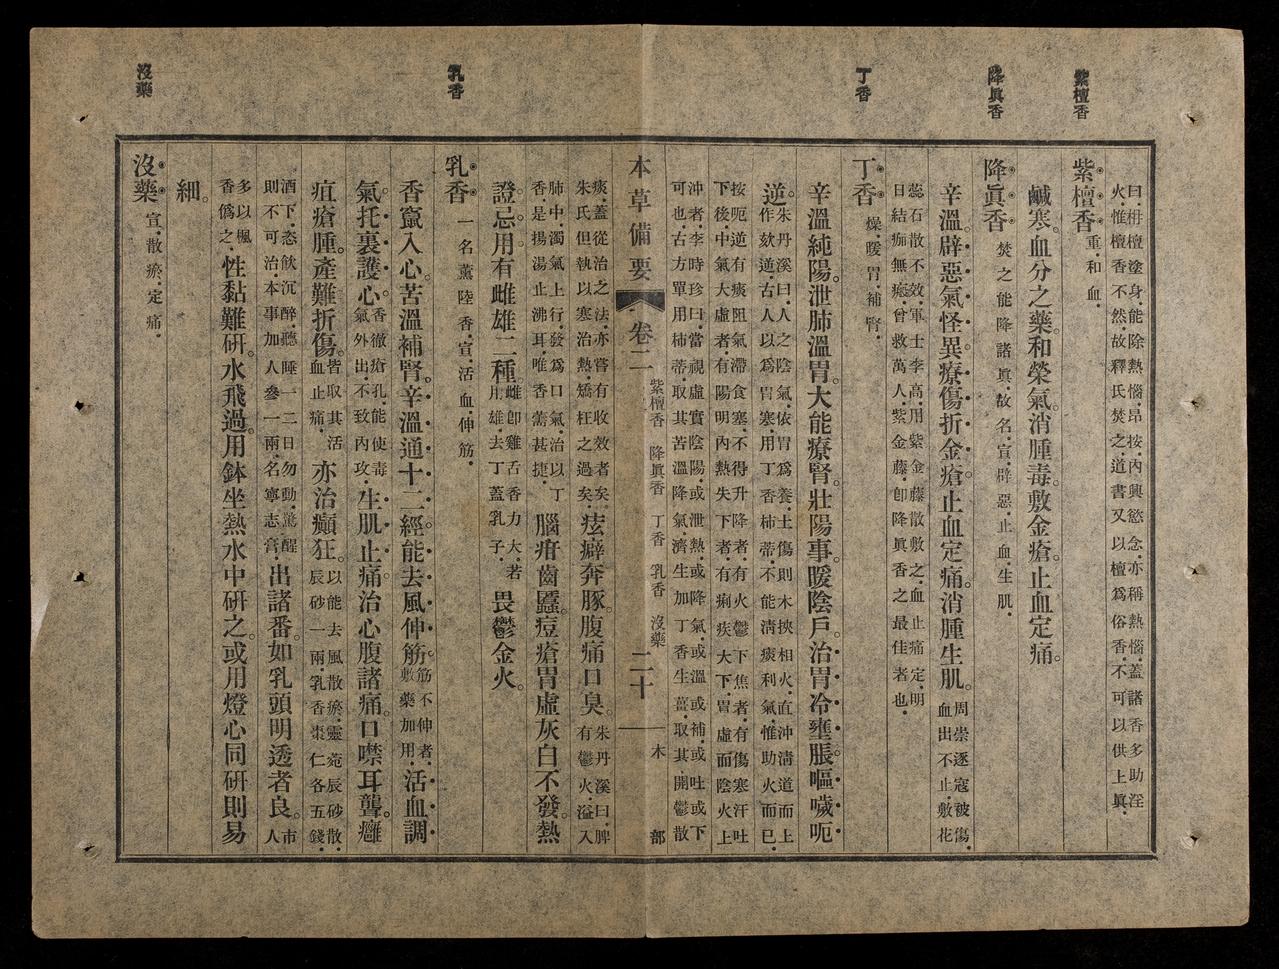 紫檀香
降眞香
丁香
乳香
沒藥
曰．栴檀塗身．能除熱惱．昂按．內興慾念．亦稱熱惱．蓋諸香多助淫
火．惟檀香不然．故釋氏焚之．道書又以檀爲俗香．不可以供上眞．
紫檀香 重．和血．
鹹寒。血分之藥。和榮氣。消腫毒。敷金瘡。止血定痛。
降眞香 焚之能降諸眞．故名．宣．辟惡．止血．生肌．
辛溫。辟惡氣怪異。療傷折金瘡。止血定痛。消腫生肌。周崇逐寇被傷．血出不止．敷花
蕊石散不效．軍士李高．用紫金藤散敷之．血止痛定．明
日結痂無瘢．曾救萬人．紫金藤．卽降眞香之最佳者也．
丁香 燥．暖胃．補腎．
辛溫純陽。泄肺溫胃。大能療腎。壯陽事。暖陰戶。治胃冷壅脹。嘔噦呃
逆。朱丹溪曰．人之陰氣．依胃爲養．土傷則木挾相火．直沖淸道而上
作欬逆．古人以爲胃寒．用丁香柿蒂．不能淸痰利氣．惟助火而已．
按呃逆有痰阻氣滯食塞．不得升降者．有火鬱下焦者．有傷寒汗吐
下後．中氣大虛者．有陽明內熱失下者．有痢疾大下．胃虛而陰火上
沖者．李時珍曰．當視虛實陰陽．或泄熱．或降氣．或溫或補．或吐或下
可也．古方單用柿蒂．取其苦溫降氣．濟生加丁香生薑．取其開鬱散
本草備要 卷二 紫檀香 降眞香 丁香 乳香 沒藥 二十 木部
痰．蓋從治之法．亦嘗有收效者矣．
朱氏但執以寒治熱．矯枉之過矣．痃癖奔豚。腹痛口臭。朱丹溪曰．脾有鬱火．溢入
肺中．濁氣上行．發爲口氣．治以丁
香．是揚湯止沸耳．唯香薷甚捷．腦疳齒䘌。痘瘡胃虛。灰白不發。熱
證忌用。有雌雄二種。雌卽雞舌香．力大．若用雄．去丁蓋乳子．畏鬱金火。
乳香 一名薰陸香．宣．活血．伸筋．
香竄入心。苦溫補腎。辛溫通十二經。能去風伸筋。筋不伸者．敷藥加用．活血調
氣。托裏護心。香徹瘡孔．能使毒氣外出．不致內攻．生肌止痛。治心腹諸痛。口噤耳聾。癰
疽瘡腫。產難折傷。皆取其活血止痛．亦治癲狂。以能去風散瘀．靈菀辰砂散．辰砂一兩．乳香棗仁各五錢．
酒下．恣飮沉醉．聽睡一二日勿動．驚醒
則不可治．本事加人參一兩．名寧志膏．出諸番。如乳頭明透者良。市人
多以楓
香僞之．性黏難研。水飛過。用鉢坐熱水中研之。或用燈心同研則易
細。
沒藥 宣．散瘀．定痛．